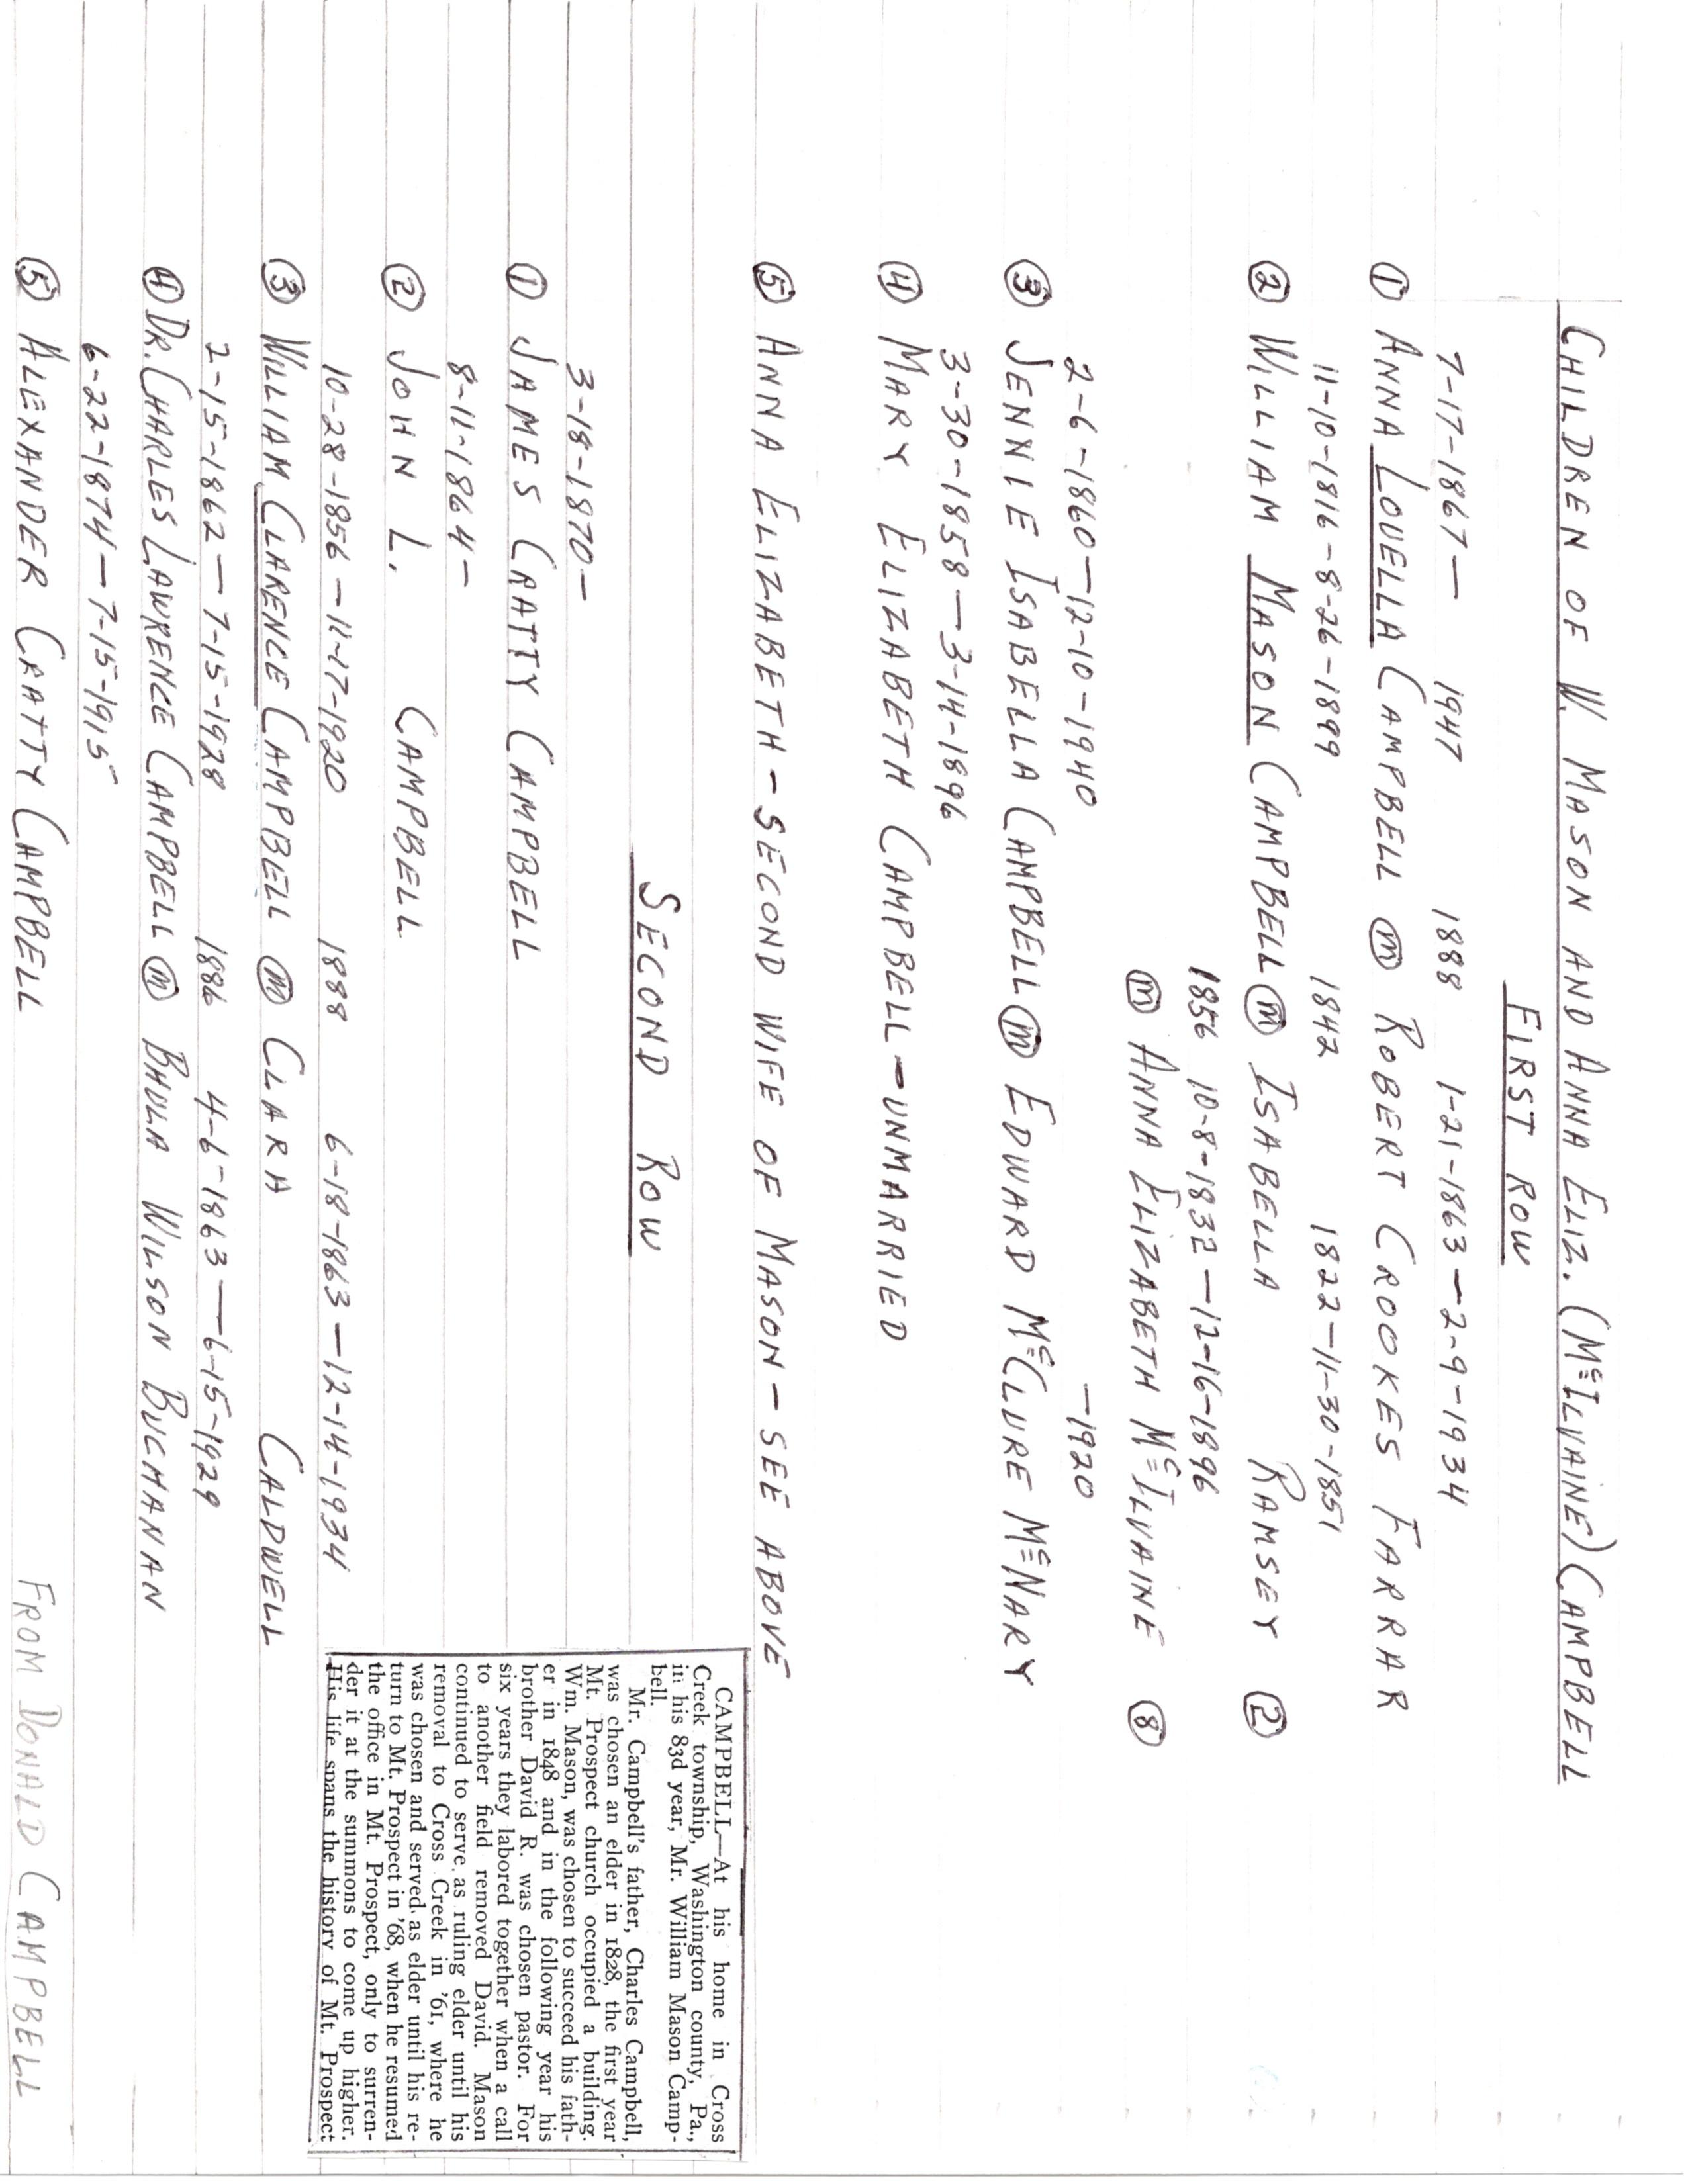 CHILDREN OF W. MASON AND ANNA ELIZ. (McILVAINE) CAMPBELL
FIRST ROW
7-17-1867— 1947 1888 1-21-1863—2-9-1934
① ANNA LOUELLA CAMPBELL ⓜ ROBERT CROOKES FARRAR
11-10-1816-8-26-1899 1842 1822-11-30-1851
② WILLIAM MASON CAMPBELL ⓜ ISABELLA RAMSEY ②
1856 10-8-1832—12-16-1896
ⓜ ANNA ELIZABETH McILVAINE ⑧
2-6-1860—12-10-1940 -1920
③ JENNIE ISABELLA CAMPBELL ⓜ EDWARD McCLURE McNARY
3-30-1858—3-14-1896
④ MARY ELIZABETH CAMPBELL-UNMARRIED
⑤ ANNA ELIZABETH-SECOND WIFE OF MASON-SEE ABOVE
SECOND ROW
3-18-1870-
① JAMES CRATTY CAMPBELL
8-11-1864-
② JOHN L. CAMPBELL
10-28-1856-11-17-1920 1888 6-18-1863—12-14-1934
③ WILLIAM CLARENCE CAMPBELL ⓜ CLARA CALDWELL
2-15-1862—7-15-1928 1886 4-6-1863—6-15-1929
④ DR. CHARLES LAWRENCE CAMPBELL ⓜ BHULA WILSON BUCHANAN
6-22-1874—7-15-1915
⑤ ALEXANDER CRATTY CAMPBELL
CAMPBELL—At his home in Cross
Creek township, Washington county, Pa.,
in his 83d year, Mr. William Mason Camp-
bell.
Mr. Campbell's father, Charles Campbell,
was chosen an elder in 1828, the first year
Mt. Prospect church occupied a building.
Wm. Mason, was chosen to succeed his fath-
er in 1848 and in the following year his
brother David R. was chosen pastor. For
six years they labored together when a call
to another field removed David. Mason
continued to serve as ruling elder until his
removal to Cross Creek in '61, where he
was chosen and served as elder until his re-
turn to Mt. Prospect in '68, when he resumed
the office in Mt. Prospect, only to surren-
der it at the summons to come up higher.
His life spans the history of Mt. Prospect
FROM DONALD CAMPBELL